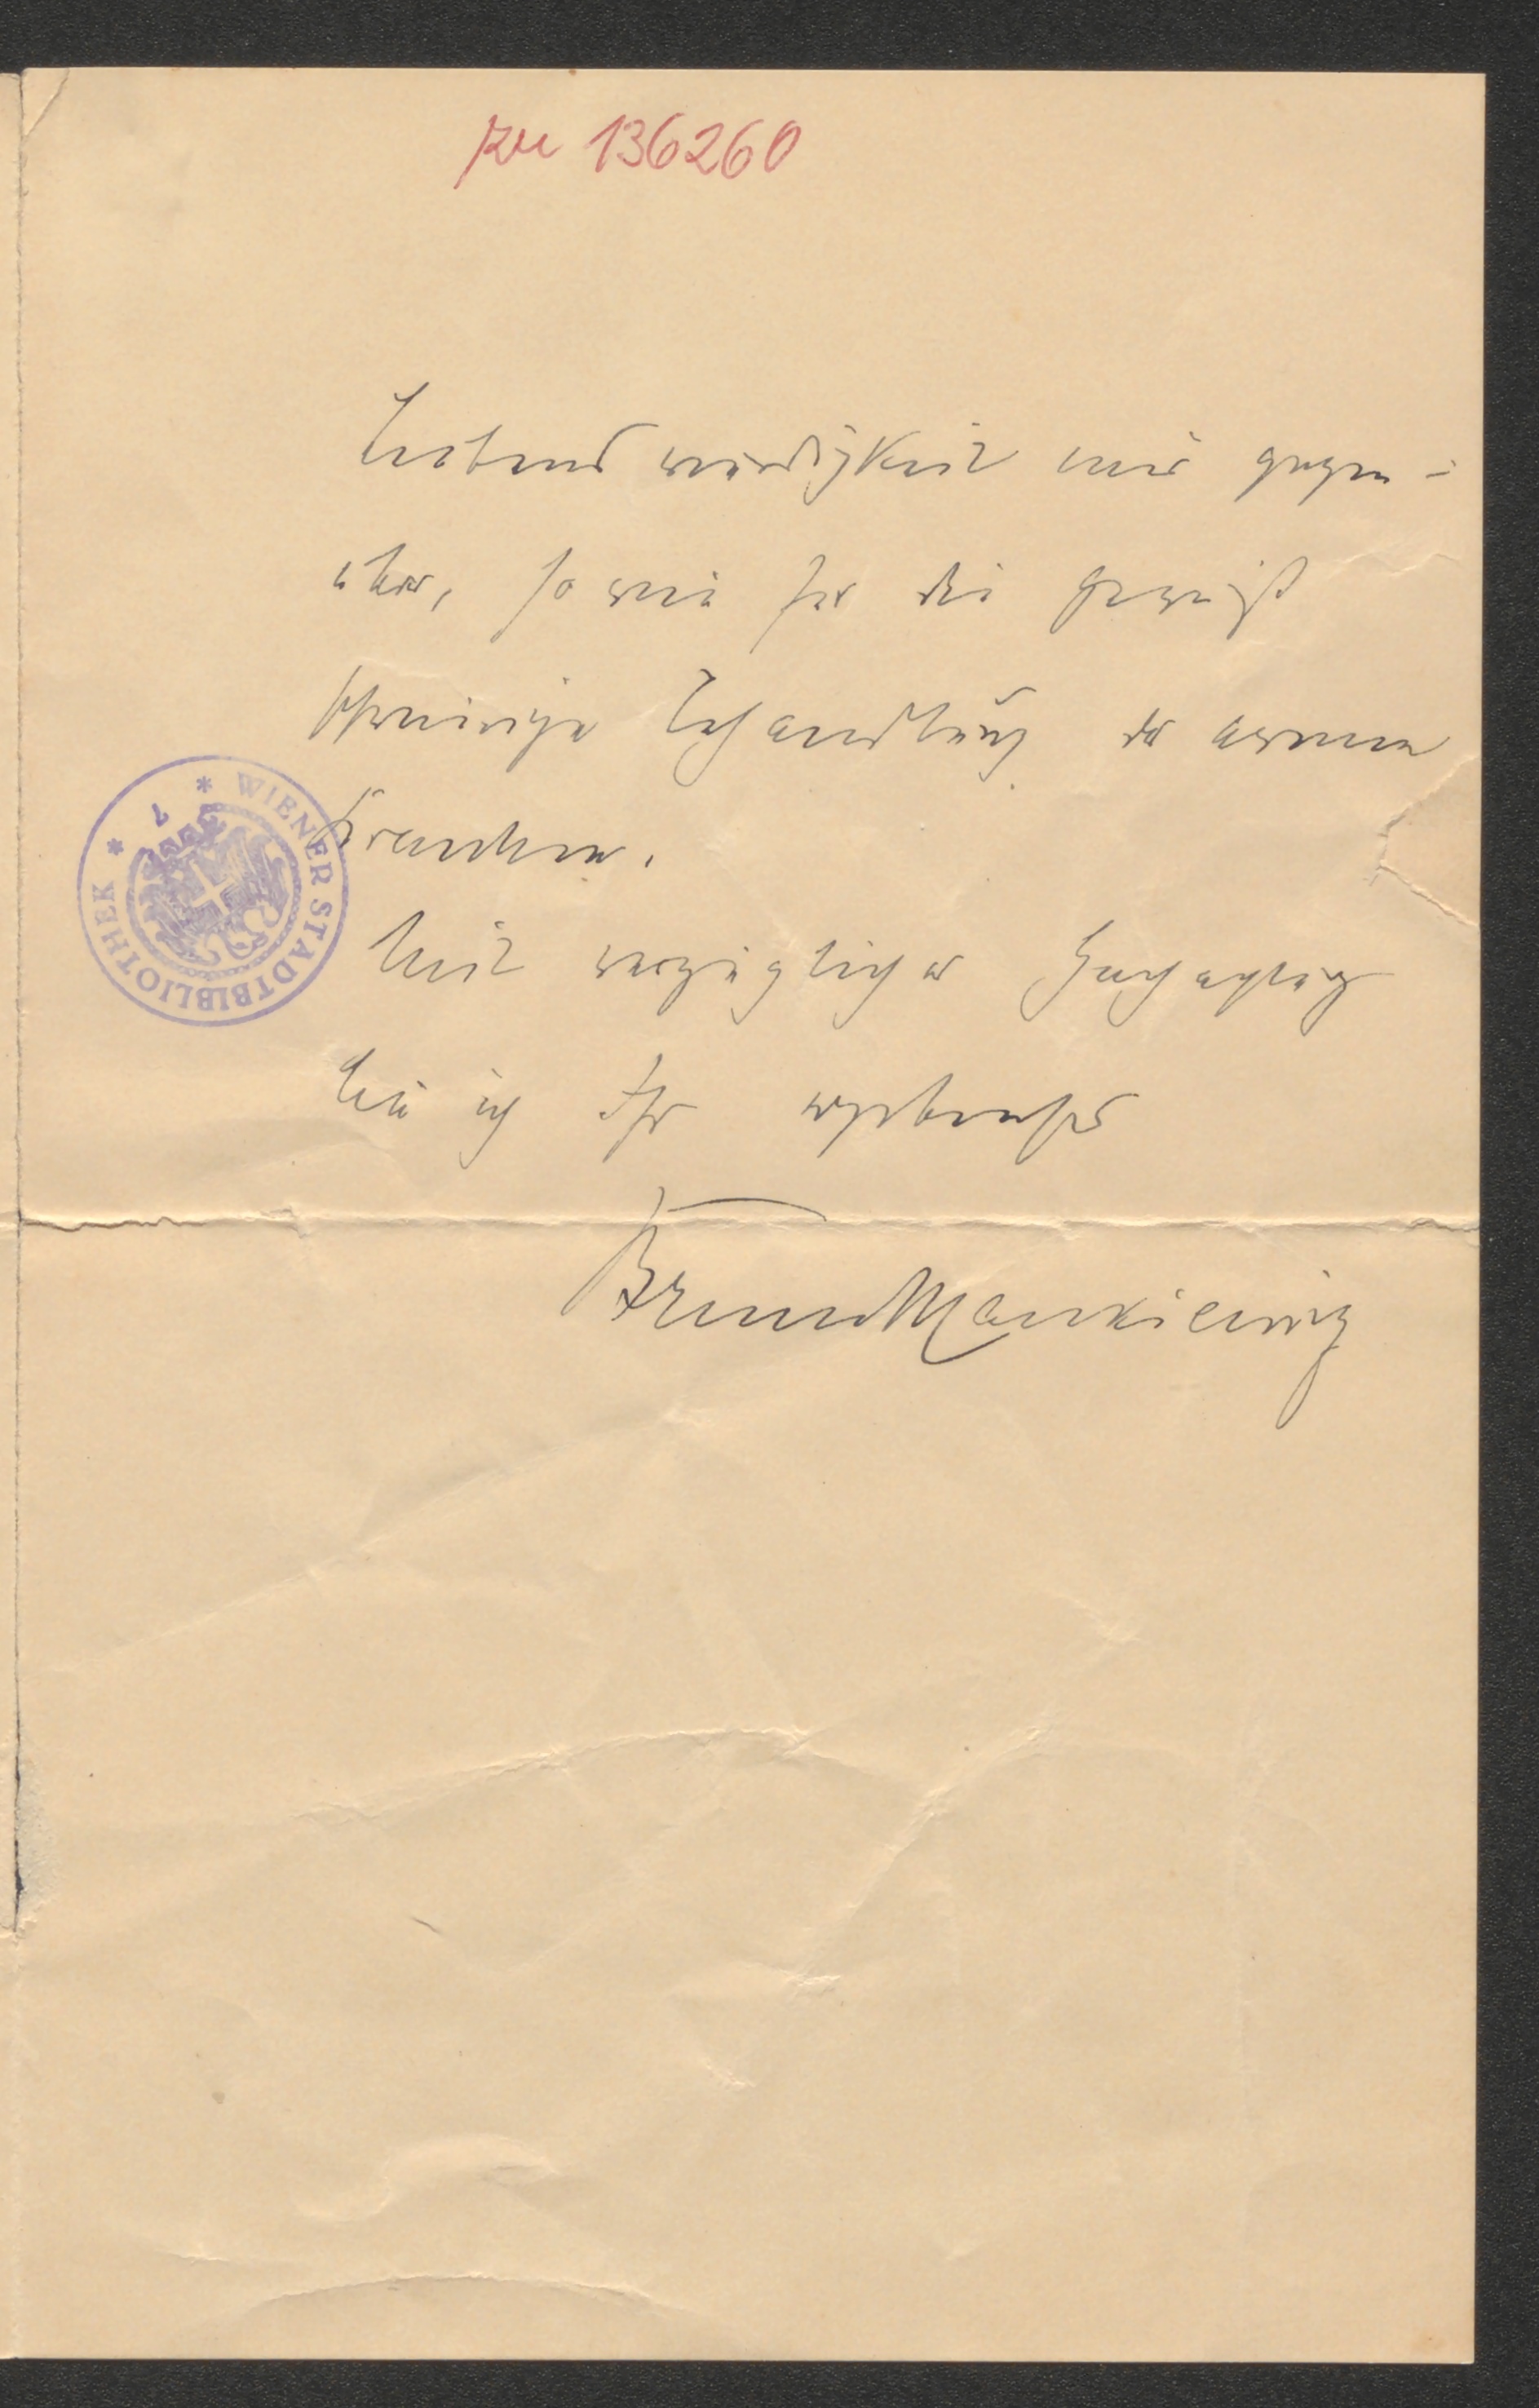 zu 136260
Liebenswürdigkeit mir gegen-
über, so wie für die gewiß
schwierige Behandlung der armen
Kranken.
Mit vorzüglicher Hochachtung
bin ich Ihr ergebenster
Bruno Mankiewicz
* WIENER STADTBIBLIOTHEK *